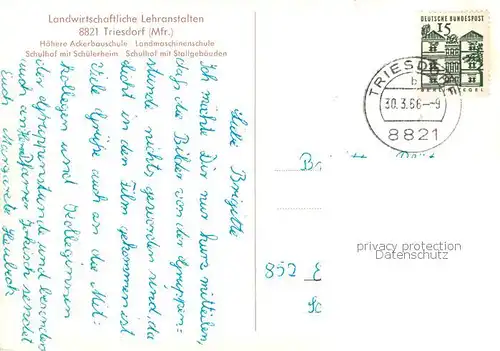 Landwirtschaftliche Lehranstalten
8821 Triesdorf (Mfr.)
Höhere Ackerbauschule Landmaschinenschule
Schulhof mit Schülerheim Schulhof mit Stallgebäuden
Liebe Brigitte
Ich möchte Dir nur kurz mitteilen,
daß die Bilder von der Gruppen=
stunde nichts geworden sind, da
Licht in den Film gekommen ist
Viele Grüße auch an die Mit=
kollegen und Kolleginnen
der Gruppenstunde und besonders
auch an Pfarrer sendet
Euch
DEUTSCHE BUNDESPOST
15
TRIESDORF
b
30.3.66-9
8821
privacy protection
Datenschutz
852 E